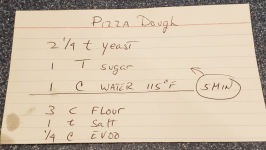 PIZZA Dough
2 1/4 t yeast
1 T sugar
1 C WATER 115°F
5 MIN
3 C FLOUR
1 t SalT
1/4 C EVOO